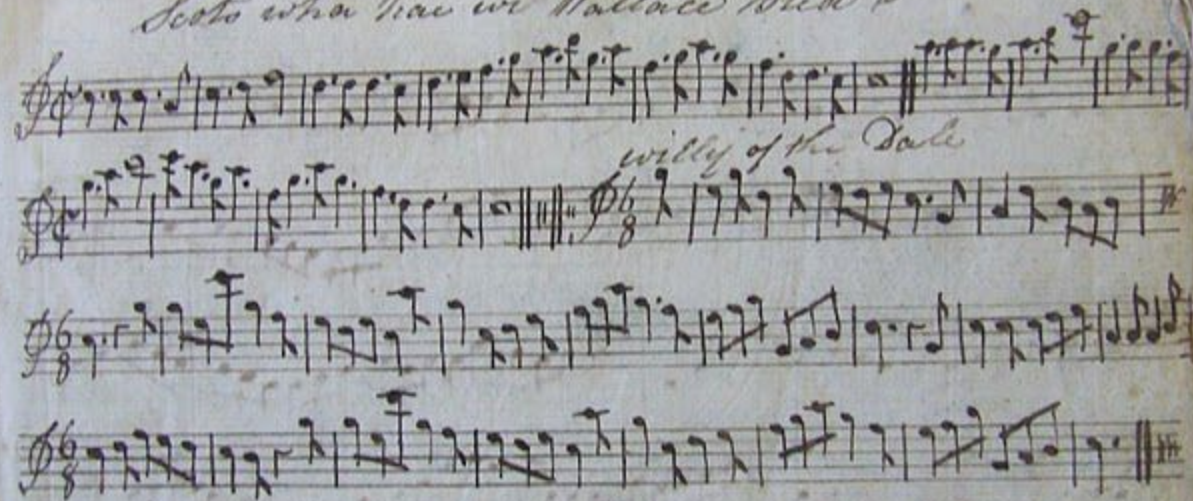 Scots wha hae wi Wallace bled
willy of the Dale
6
8
6
8
6
8